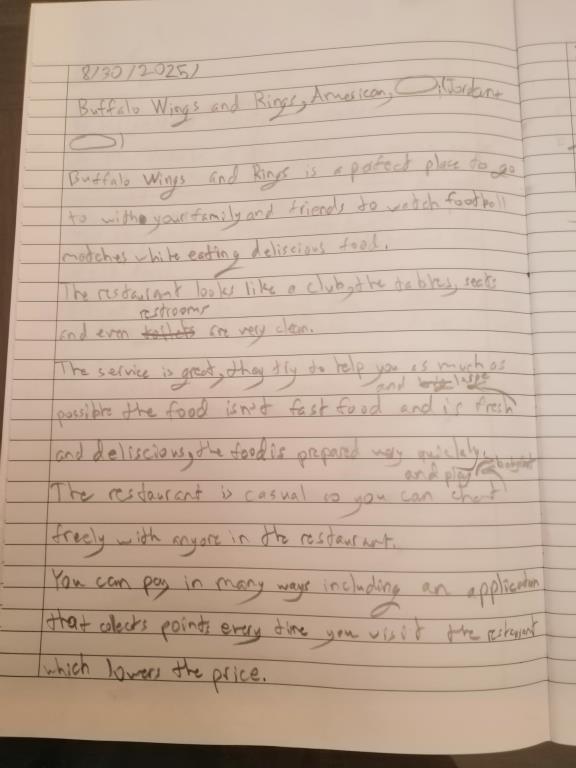 8/30/2025)
Buffalo Wings and Rings, American, (Jordan
)
Buffalo Wings and Rings is a pefect place to go
to with your family and friends to watch football
matches while eating deliscious food.
The restaurant looks like a club, the tables, seats
restrooms
and even toilets are very clean.
The service is great, they try to help you as much as
and large
possible the food isn't fast food and is fresh
and deliscious, the food is prepared very quickely.
and play
The restaurant is casual so you can chat
freely with anyone in the restaurant.
You can pay in many ways including an application
that colects points every time you visit the restaurant
which lowers the price.